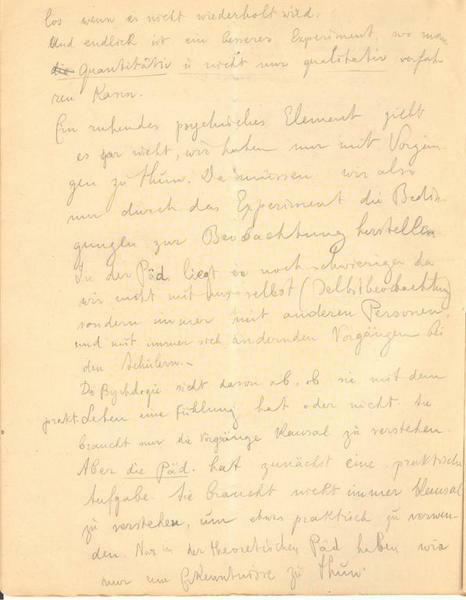 los wenn es nicht wiederholt wird.
Und endlich ist ein besseres Experiment, wo man
Quantitativ u nicht nur qualitativ verfah
ren Kann.
Ein ruhendes psychisches Element giebt
es gar nicht, wir haben nur mit Vorgän
gen zu thun. Da müssen wir also
nur durch das Experiment die Bedin
gungen zur Beobachtung herstellen
In der Päd. liegt es noch schwieriger da
wir nicht mit uns selbst (Selbstbeobachtung)
sondern immer mit anderen Personen,
und mit immer sich ändernden Vorgängen bei
den Schülern.
Die Psychologie sieht davon ab, ob sie mit dem
prakt. Leben eine Fühlung hat oder nicht. Sie
braucht nur die Vorgänge Kausal zu verstehen.
Aber die Päd. hat zunächst eine praktische
Aufgabe. Sie braucht nicht immer Kausal
zu verstehen, um etwas praktisch zu verwen
den. Nur in der theoretischen Päd haben wir
nur um Erkenntnisse zu thun.